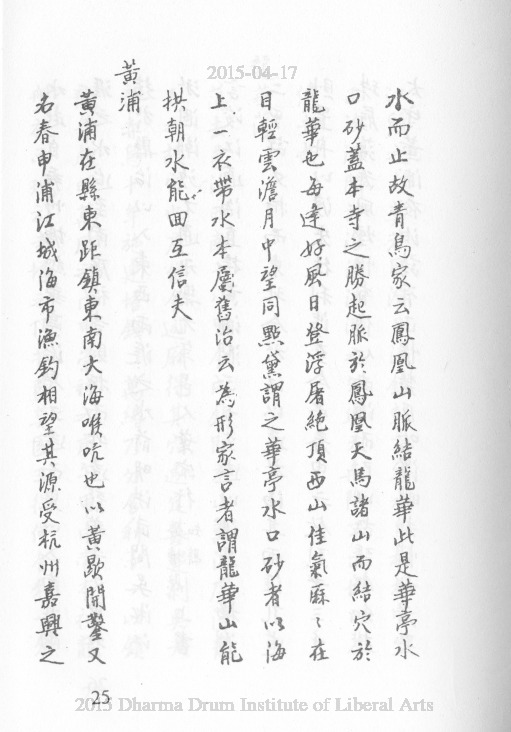 2015-04-17
水而止故青烏家云鳳凰山脈結龍華此是華亭水
口砂蓋本寺之勝起脈於鳳凰天馬諸山而結穴於
龍華也每逢好風日登浮屠絕頂西山佳氣霢〻在
目輕雲澹月中望同點黛謂之華亭水口砂者以海
上一衣帶水本屬舊治云為形家言者謂龍華山能
拱朝水能回互信夫
黃浦
黃浦在縣東距鎮東南大海喉吭也以黃歇開鑿又
右春申浦江城海市漁鈞相望其源受杭州嘉興之
25
2015 Dharma Drum Institute of Liberal Arts